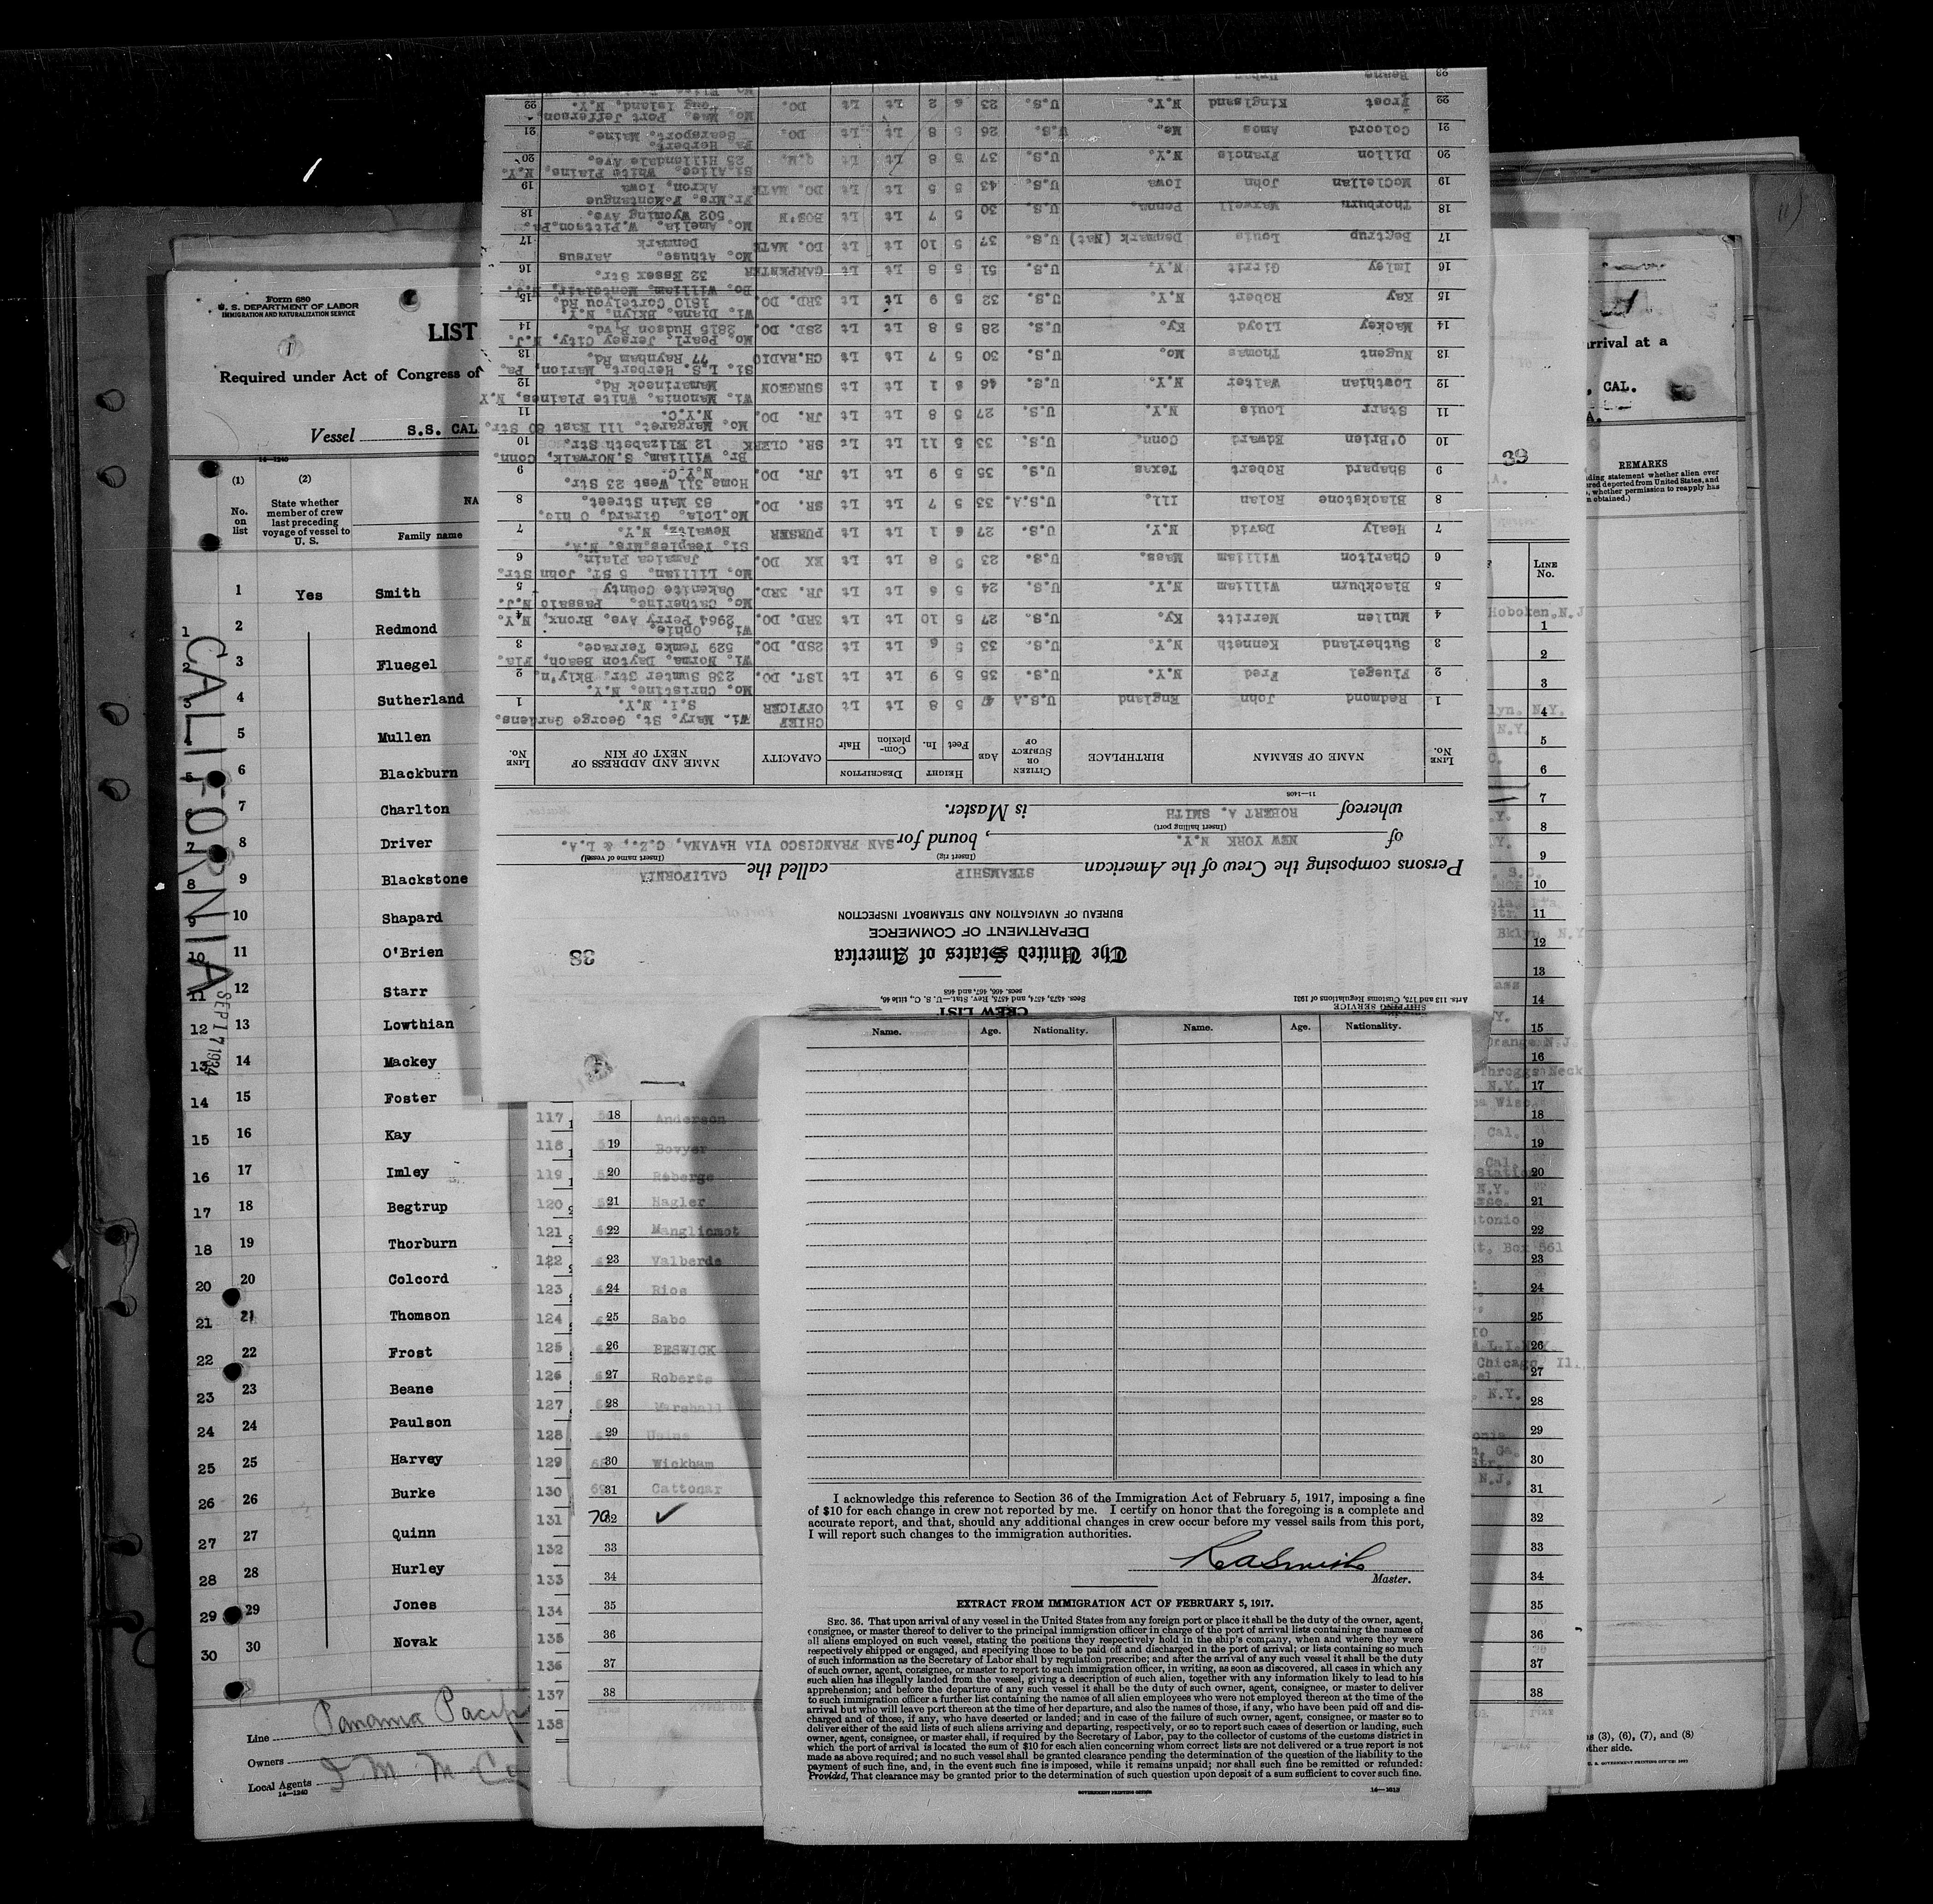 Form 680
U. S. DEPARTMENT OF LABOR
IMMIGRATION AND NATURALIZATION SERVICE
LIST
Required under Act of Congress of
Vessel S.S. CAL
14—1240
(1) (2)
No. on list
State whether member of crew last preceding voyage of vessel to U. S.
NA
Family name
1 Yes Smith
1 2 Redmond
2 3 Fluegel
3 4 Sutherland
4 5 Mullen
5 6 Blackburn
6 7 Charlton
7 8 Driver
8 9 Blackstone
9 10 Shapard
10 11 O'Brien
11 12 Starr
12 13 Lowthian
13 14 Mackey
14 15 Foster
15 16 Kay
16 17 Imley
17 18 Begtrup
18 19 Thorburn
20 20 Colcord
21 21 Thomson
22 22 Frost
23 23 Beane
24 24 Paulson
25 25 Harvey
26 26 Burke
27 27 Quinn
28 28 Hurley
29 29 Jones
30 30 Novak
CALIFORNIA
SEP 17 1934
Line Panama Pacif
Owners
Local Agents I M M Co
14—1240
CREW LIST
SHIPPING SERVICE
Arts. 113 and 175, Customs Regulations of 1931
Secs. 4573, 4574, and 4575, Rev. Stat.—U. S. C., title 46, secs. 466, 467, and 468
38
The United States of America
DEPARTMENT OF COMMERCE
BUREAU OF NAVIGATION AND STEAMBOAT INSPECTION
Persons composing the Crew of the American STEAMSHIP called the CALIFORNIA
(Insert rig) (Insert name of vessel)
of NEW YORK N.Y., bound for SAN FRANCISCO VIA HAVANA, C.Z., & L.A.
(Insert hailing port)
whereof ROBERT A. SMITH is Master.
11—1406
LINE No. NAME OF SEAMAN BIRTHPLACE CITIZEN OR SUBJECT OF AGE HEIGHT Feet In. DESCRIPTION Complexion Hair CAPACITY NAME AND ADDRESS OF NEXT OF KIN LINE No.
1 Redmond John England U.S.A 47 5 8 Lt Lt CHIEF OFFICER Wi. Mary. St. George Gardens. S.I. N.Y. 1
2 Fluegel Fred N.Y. U.S. 35 5 9 Lt Lt 1ST. DO. Mo. Christine. N.Y. 238 Sumter Str. Bkly'n. 2
3 Sutherland Kenneth N.Y. U.S. 33 5 6 Lt Lt 2SD. DO. Wi. Norma. Dayton Beach, Fla. 529 Temke Terrace. 3
4 Mullen Merritt Ky. U.S. 27 5 10 Lt Lt 3RD. DO. Wi. Ophie. 2964 Perry Ave. Bronx, N.Y. 4
5 Blackburn William N.Y. U.S. 24 5 6 Lt Lt JR. 3RD. Mo. Catherine. Passaic N.J. Oakenite County 5
6 Charlton William Mass. U.S. 23 5 8 Lt Lt EX DO. Mo. Lillian. 5 ST. John Str. Jamaica Plain. 6
7 Healy David N.Y. U.S. 27 6 1 Lt Lt PURSER Si. Yeaples.Mrs. N.A. Newaltz, N.Y. 7
8 Blackstone Rolan Ill. U.S.A. 33 5 7 Lt Lt SR. DO. Mo.Lola. Girard, O hio. 83 Main Street. 8
9 Shapard Robert Texas U.S. 35 5 9 Lt Lt JR. DO. Home 311 West 23 Str. N.Y.C. 9
10 O'Brien Edward Conn. U.S. 33 5 11 Lt Lt SR. CLERK Br. William. S.NORwalk, Conn. 12 Elizabeth Str. 10
11 Starr Louis N.Y. U.S. 27 5 8 Lt Lt JR. DO. Mo. Margaret. 111 East 80 Str. N.Y.C. 11
12 Lowthian Walter N.Y. U.S. 46 6 1 Lt Lt SURGEON Wi. Manonia. White Plaines, N.Y Mamarineck Rd. 12
13 Nugent Thomas Mo. U.S. 30 5 7 Lt Lt CH.RADIO Si. L.S. Herbert. Marion, Pa. 77 Raynham Rd. 13
14 Mackey Lloyd Ky. U.S. 28 5 8 Lt Lt 2SD. DO. Mo. Pearl. Jersey City, N.J. 2815 Hudson Blvd. 14
15 Kay Robert N.Y. U.S. 32 5 9 Lt Lt 3RD. DO. Wi. Diana. Bklyn. N.Y. 1810 Cortelyou Rd. 15
16 Imley Girrit N.Y. U.S. 51 5 8 Lt Lt CARPENTER Bo. William. Montclair, N.J. 32 Essex Str. 16
17 Begtrup Louis Denmark (Nat) U.S. 37 5 10 Lt Lt DO. MATE Mo. Athuse. Aarsus Denmark 17
18 Thorburn Maxwell Penna. U.S. 30 5 7 Lt Lt BOS'N Mo. Amelia. W.Pittson.Pa. 502 Wyoming Ave. 18
19 McClellan John Iowa U.S. 43 5 5 Lt Lt DO. MATE Fr.Mrs. F.Montangue Akron, Iowa 19
20 Dillon Francis N.Y. U.S. 37 5 8 Lt Lt Q.M. Si.Alice. White Plains, N.Y. 25 Hillandale Ave. 20
21 Colcord Amos Me. U.S. 26 5 8 Lt Lt DO. Fa. Herbert. Searsport. Maine. 21
22 Frost Kingsland N.Y. U.S. 23 6 2 Lt Lt DO. Mo. Mae. Port Jefferson, Long Island, N.Y. 22
23 Beane
117 18 Anderson
118 19 Bovyer
119 20 Roberge
120 21 Hagler
121 22 Manglicmot
122 23 Valberde
123 24 Rios
124 25 Sabo
125 26 BESWICK
126 27 Roberts
127 28 Marshall
128 29
129 30 Wickham
130 31 Cattonar
131 70 32 ✓
132 33
133 34
134 35
135 36
136 37
137 38
138
Name. Age. Nationality. Name. Age. Nationality.
I acknowledge this reference to Section 36 of the Immigration Act of February 5, 1917, imposing a fine
of $10 for each change in crew not reported by me. I certify on honor that the foregoing is a complete and
accurate report, and that, should any additional changes in crew occur before my vessel sails from this port,
I will report such changes to the immigration authorities.
RASmith
Master.
EXTRACT FROM IMMIGRATION ACT OF FEBRUARY 5, 1917.
SEC. 36. That upon arrival of any vessel in the United States from any foreign port or place it shall be the duty of the owner, agent,
consignee, or master thereof to deliver to the principal immigration officer in charge of the port of arrival lists containing the names of
all aliens employed on such vessel, stating the positions they respectively hold in the ship's company, when and where they were
respectively shipped or engaged, and specifying those to be paid off and discharged in the port of arrival; or lists containing so much
of such information as the Secretary of Labor shall by regulation prescribe; and after the arrival of any such vessel it shall be the duty
of such owner, agent, consignee, or master to report to such immigration officer, in writing, as soon as discovered, all cases in which any
such alien has illegally landed from the vessel, giving a description of such alien, together with any information likely to lead to his
apprehension; and before the departure of any such vessel it shall be the duty of such owner, agent, consignee, or master to deliver
to such immigration officer a further list containing the names of all alien employees who were not employed thereon at the time of the
arrival but who will leave port thereon at the time of her departure, and also the names of those, if any, who have been paid off and dis-
charged and of those, if any, who have deserted or landed; and in case of the failure of such owner, agent, consignee, or master so to
deliver either of the said lists of such aliens arriving and departing, respectively, or so to report such cases of desertion or landing, such
owner, agent, consignee, or master shall, if required by the Secretary of Labor, pay to the collector of customs of the customs district in
which the port of arrival is located the sum of $10 for each alien concerning whom correct lists are not delivered or a true report is not
made as above required; and no such vessel shall be granted clearance pending the determination of the question of the liability to the
payment of such fine, and, in the event such fine is imposed, while it remains unpaid; nor shall such fine be remitted or refunded:
Provided, That clearance may be granted prior to the determination of such question upon deposit of a sum sufficient to cover such fine.
GOVERNMENT PRINTING OFFICE
39
LINE No.
Hoboken,N.J
1
2
3
lyn. N.Y. 4
N.Y. 5
6
7
8
9
10
11
Bklyn, N.Y 12
13
14
15
Orange N.J 16
Throggs Neck
N.Y. 17
18
Cal. 19
Cal. Station 20
N.Y. 21
tonio 22
Box 561 23
24
25
26
Chicago, Ill. 27
N.Y. 28
29
30
N.J. 31
32
33
34
35
36
37
38
arrival at a
, CAL.
REMARKS
ding statement whether alien ever
red deported from United States, and
, whether permission to reapply has
n obtained.)
s (3), (6), (7), and (8)
other side.